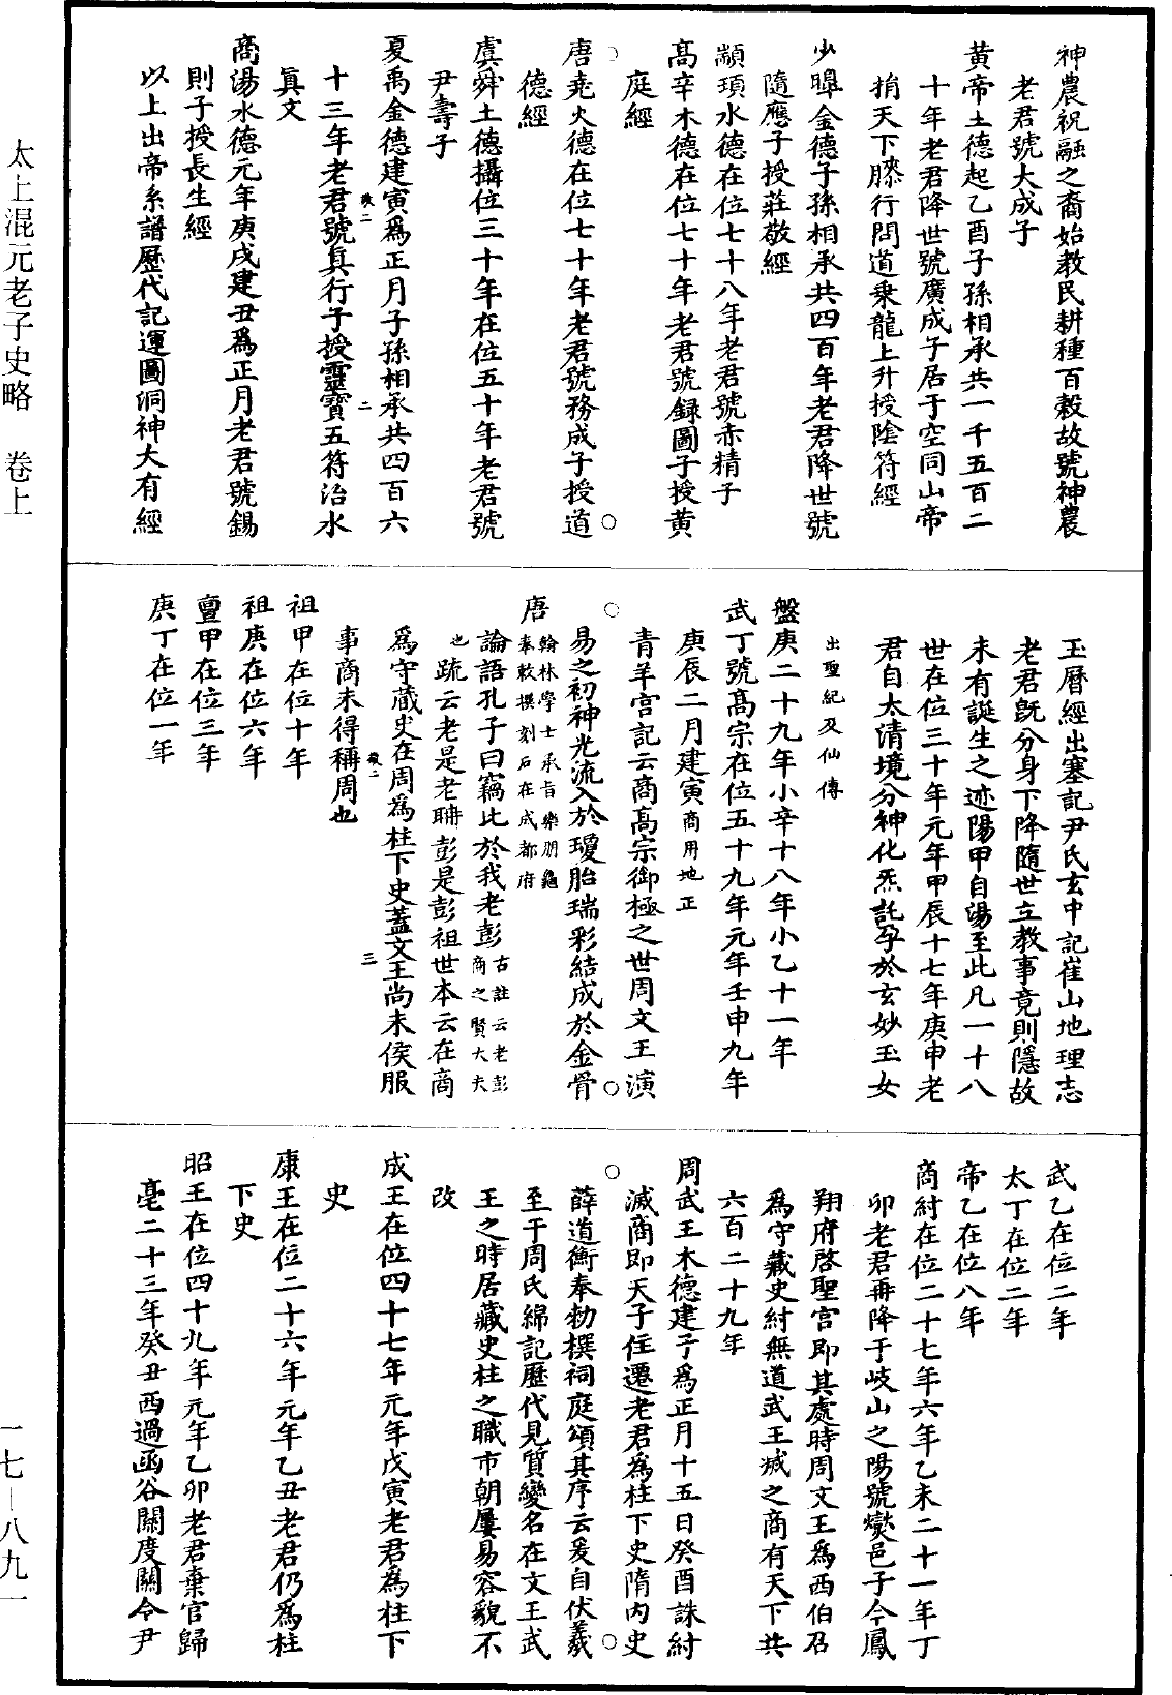 神農祝融之裔始教民耕種百穀故號神農
老君號大成子
黃帝土德起乙酉子孫相承共一千五百二
十年老君降世號廣成子居于空同山帝
捐天下膝行問道乗龍上升授陰符經
少皡金德子孫相承共四百年老君降世號
隨應子授莊敬經
顓頊水德在位七十八年老君號赤精子
髙辛木德在位七十年老君號録圖子授黃
庭經
唐堯火德在位七十年老君號務成子授道
德經
虞舜土德攝位三十年在位五十年老君號
尹壽子
夏禹金德建寅爲正月子孫相承共四百六
十三年老君號真行子授靈寶五符治水
真文
商湯水德元年庚戌建丑爲正月老君號錫
則子授長生經
以上出帝系譜歷代記運圖洞神大有經
玉曆經出塞記尹氏玄中記崔山地理志
老君既分身下降隨世立教事竟則隱故
未有誕生之迹陽甲自湯至此凡一十八
世在位三十年元年甲辰十七年庚申老
君自太清境分神化炁託孕於玄妙玉女
出聖紀及仙傳
盤庚二十九年小辛十八年小乙十一年
武丁號高宗在位五十九年元年壬申九年
庚辰二月建寅商用地正
青羊宮記云商高宗御極之世周文王演
易之初神光流入於瓊胎瑞彩結成於金骨
唐翰林學士承旨樂朋龜
奉敕撰刻石在成都府
論語孔子曰竊比於我老彭古註云老彭
商之賢大夫
也疏云老是老聃彭是彭祖世本云在商
爲守藏史在周爲柱下史蓋文王尚未侯服
事商未得稱周也
祖甲在位十年
祖庚在位六年
亶甲在位三年
庚丁在位一年
武乙在位二年
太丁在位二年
帝乙在位八年
商紂在位二十七年六年乙未二十一年丁
卯老君再降于岐山之陽號燮邑子今鳳
翔府啓聖宮即其處時周文王爲西伯召
爲守藏史紂無道武王㓕之商有天下共
六百二十九年
周武王木德建子爲正月十五日癸酉誅紂
滅商即天子位遷老君爲柱下史隋内史
薛道衡奉勑撰祠庭頌其序云爰自伏羲
至于周氏綿記歷代見質變名在文王武
王之時居藏史柱之職市朝屢易容貌不
改
成王在位四十七年元年戊寅老君爲柱下
史
康王在位二十六年元年乙丑老君仍爲柱
下史
昭王在位四十九年元年乙卯老君棄官歸
亳二十三年癸丑西過函谷關度關令尹
太上混元老子史略 卷上
一七—八九一